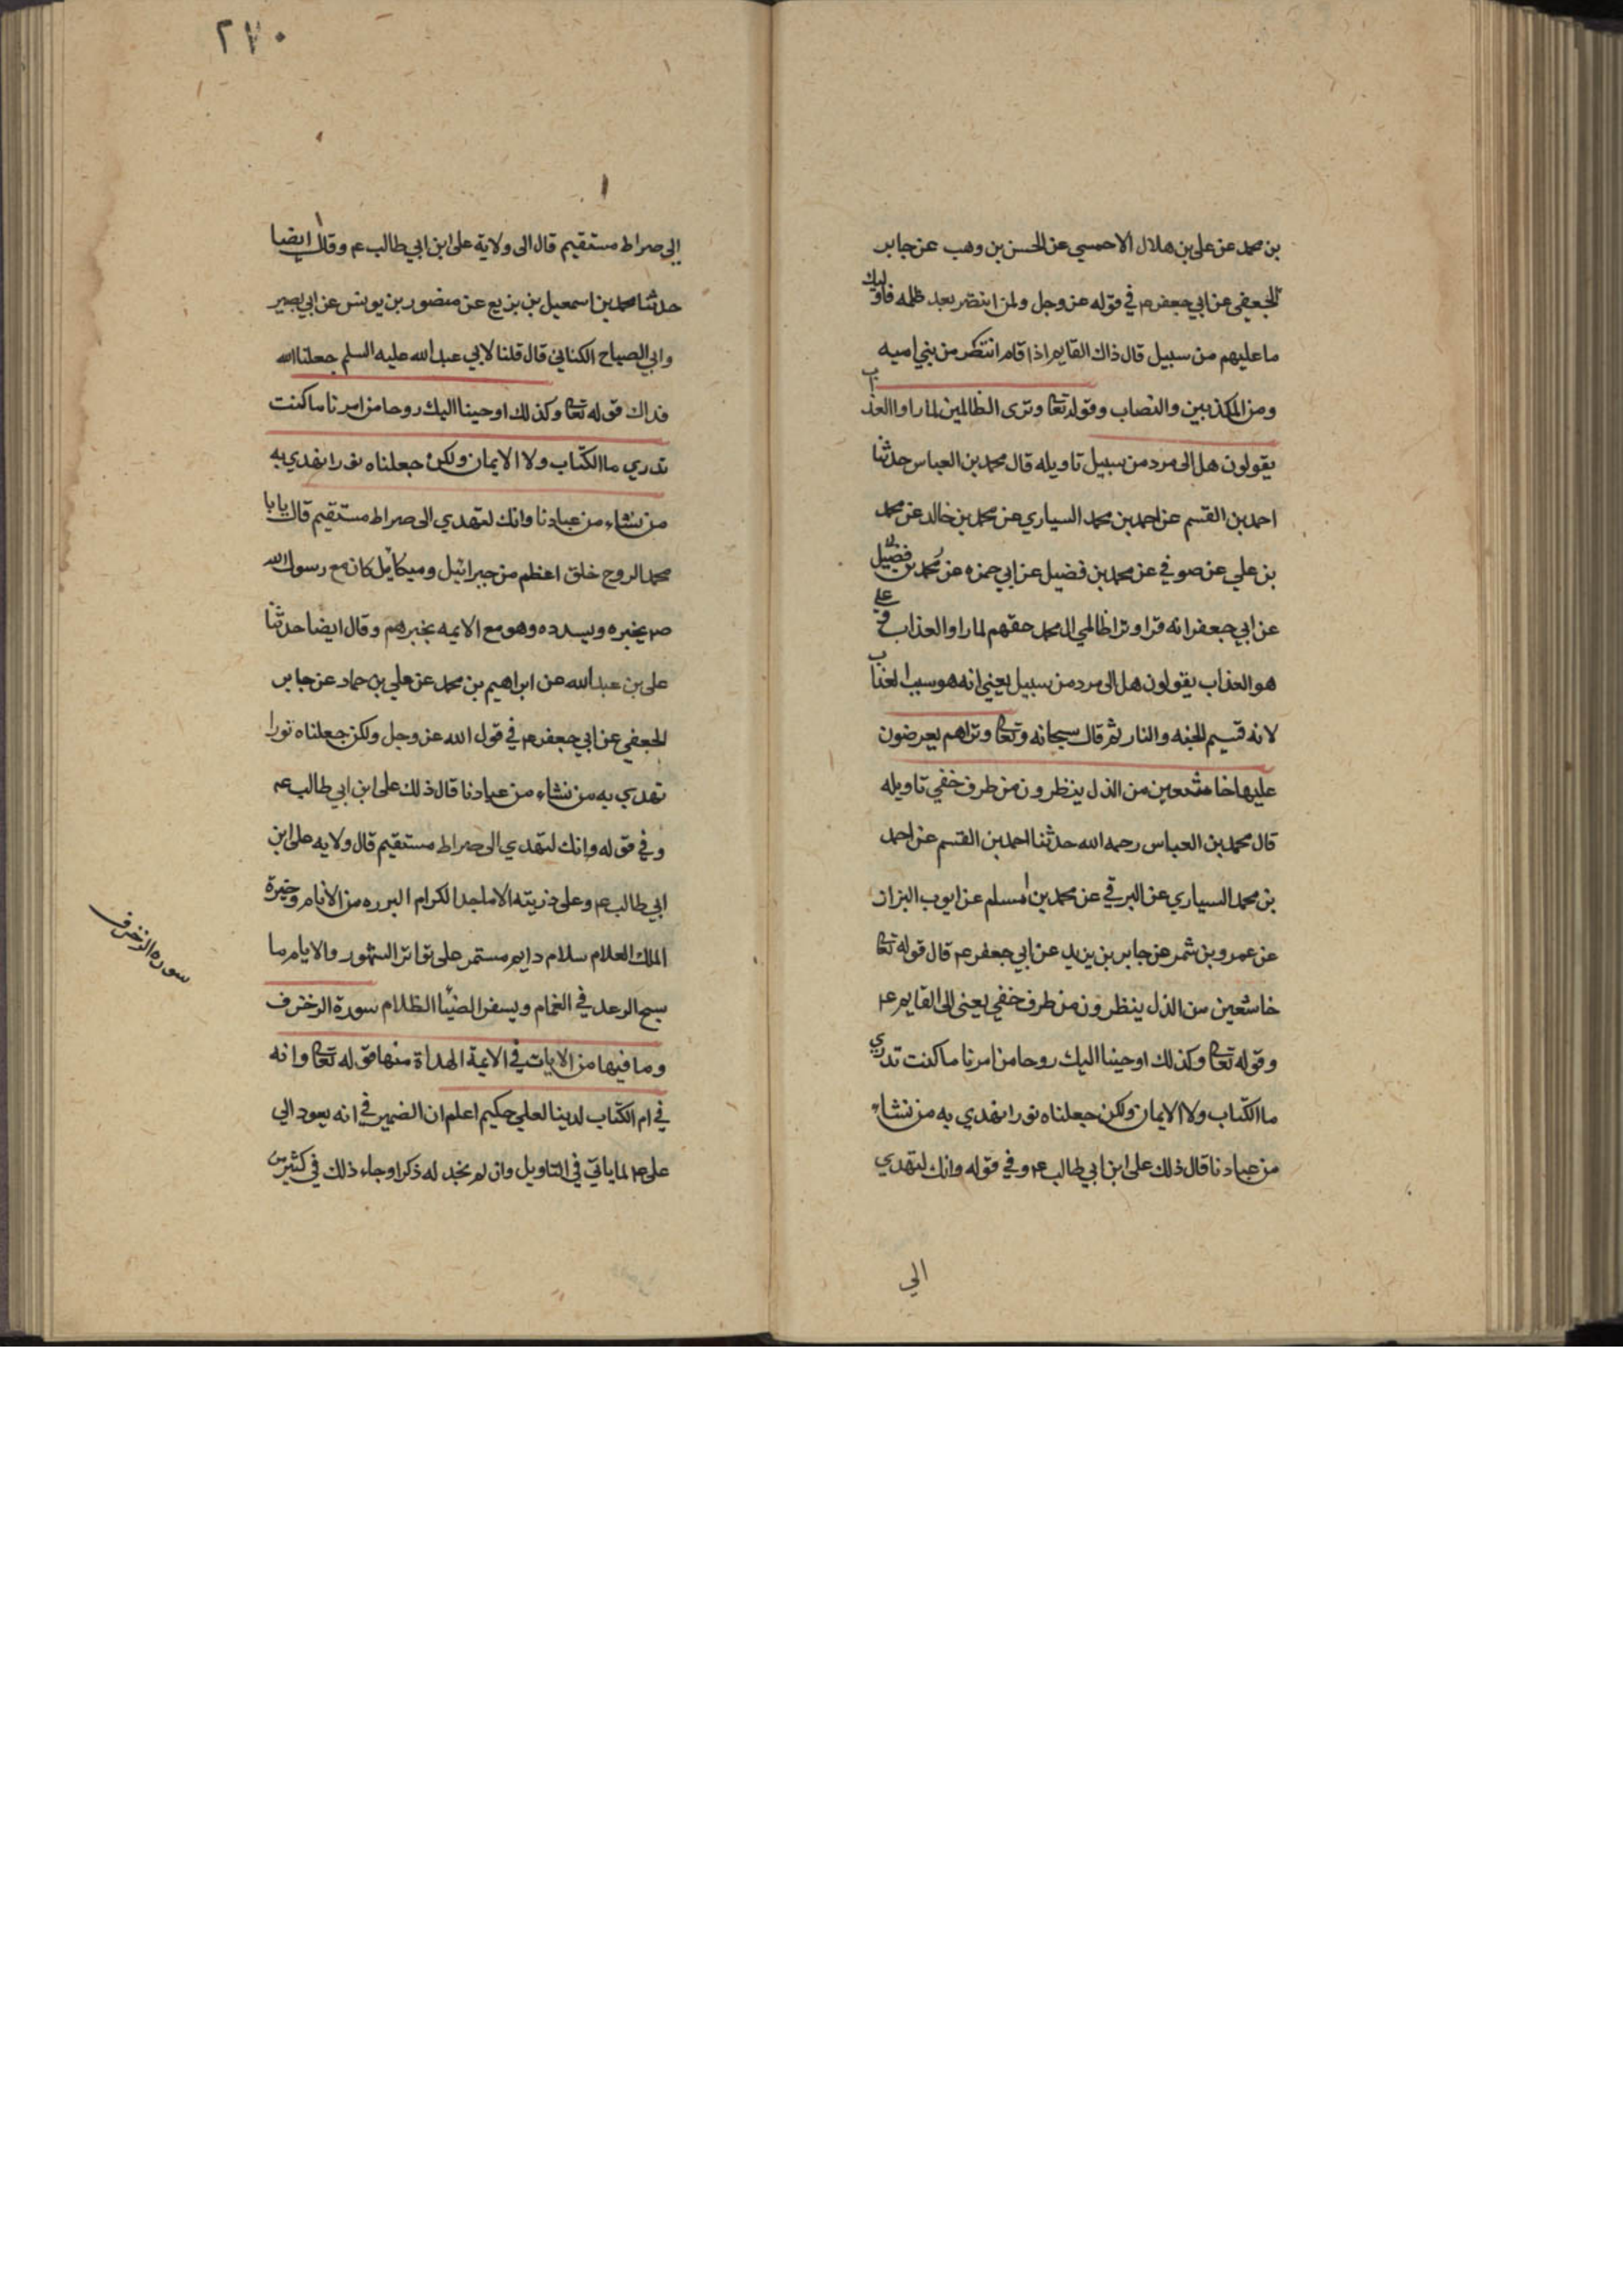 بن محمد عن علي بن هلال الاحمسي عن الحسن بن وهب عن جابر
الجعفي عن ابي جعفر ع في قوله عز وجل ولمن انتصر بعد ظلمه فاولئك
ما عليهم من سبيل قال ذاك القايم اذا قام انتصر من بني اميه
ومن المكذبين والنصاب وقوله تعا وترى الظالمين لما راوا العذاب
يقولون هل الى مرد من سبيل تاويله قال محمد بن العباس حدثنا
احمد بن القسم عن احمد بن محمد السياري عن محمد بن خالد عن محمد
بن علي عن صوفي عن محمد بن فضيل عن ابي حمزه عن محمد بن فضيل
عن ابي جعفر انه قرا وترا ظالمي ال محمد حقهم لما راوا العذاب و علي
هو العذاب يقولون هل الى مرد من سبيل يعني انه هو سبب العذاب
لانه قسيم الجنه والنار ثم قال سبحانه وتعا وتراهم يعرضون
عليها خاشعين من الذل ينظرون من طرف خفي تاويله
قال محمد بن العباس رحمه الله حدثنا احمد بن القسم عن احمد
بن محمد السياري عن البرقي عن محمد بن مسلم عن ايوب البزاز
عن عمرو بن شمر عن جابر بن يزيد عن ابي جعفر ع قال قوله تعا
خاشعين من الذل ينظرون من طرف خفي يعني الى القايم ع
وقوله تعا وكذلك اوحينا اليك روحا من امرنا ما كنت تدري
ما الكتاب ولا الايمان ولكن جعلناه نورا نهدي به من نشاء
من عبادنا قال ذلك علي ابن ابي طالب ع وفي قوله وانك لتهدي
الي
٢٧٠
الي صراط مستقيم قال الى ولاية علي ابن ابي طالب ع وقال ايضا
حدثنا محمد بن اسمعيل بن بزيع عن منصور بن يونس عن ابي بصير
وابي الصباح الكناني قال قلنا لابي عبد الله عليه السلم جعلنا الله
فداك قوله تعا وكذلك اوحينا اليك روحا من امرنا ما كنت
تدري ما الكتاب ولا الايمان ولكن جعلناه نورا نهدي به
من نشاء من عبادنا وانك لتهدي الى صراط مستقيم قال يا با
محمد الروح خلق اعظم من جبرائيل وميكائيل كان مع رسول الله
ص يخبره ويسدده وهو مع الايمه يخبرهم وقال ايضا حدثنا
علي بن عبد الله عن ابراهيم بن محمد عن علي بن حماد عن جابر
الجعفي عن ابي جعفر ع في قول الله عز وجل ولكن جعلناه نورا
نهدي به من نشاء من عبادنا قال ذلك علي ابن ابي طالب ع
وفي قوله وانك لتهدي الى صراط مستقيم قال ولايه علي ابن
ابي طالب ع وعلى ذريته الاماجد الكرام البرره من الانام وخيرة
الملك العلام سلام دايم مستمر على تواتر الشهور والايام ما
سبح الرعد في الغمام ويسفر الضيا الظلام سورة الزخرف
وما فيها من الايات في الايمة الهداة منها قوله تعا وانه
في ام الكتاب لدينا لعلي حكيم اعلم ان الضمير في انه يعود الى
علي ع لما ياتي في التاويل وان لم يجد له ذكرا وجاء ذلك في كثير من
سوره الزخرف